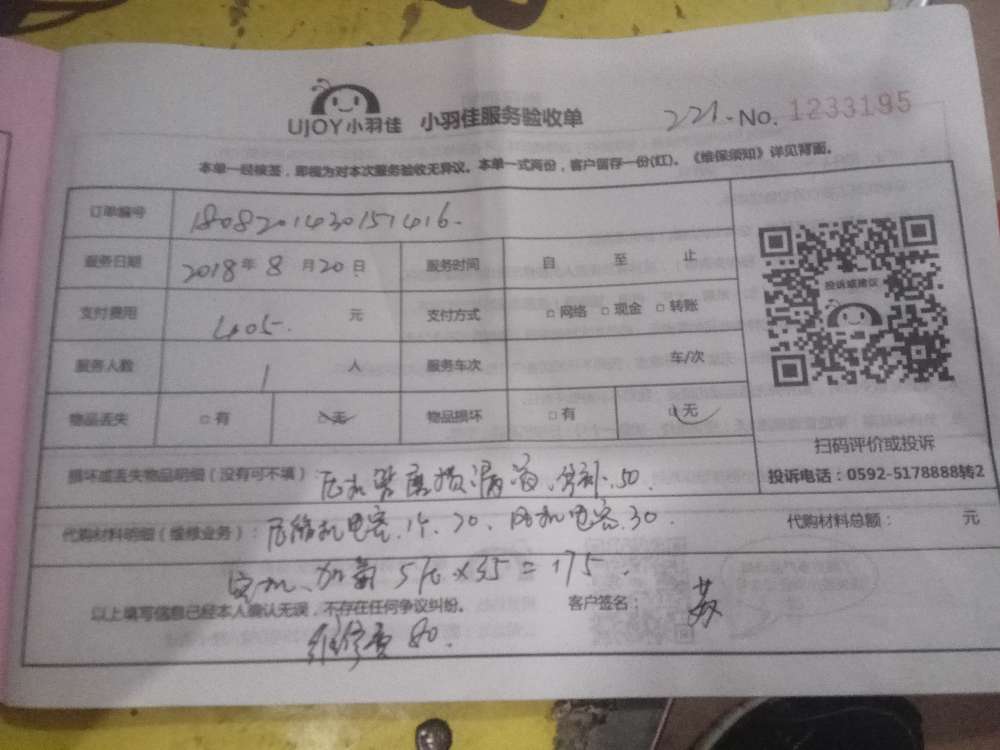 UJOY小羽佳 小羽佳服务验收单 221-No. 1233195
本单一经核签，即视为对本次服务验收无异议。本单一式两份，客户留存一份(红)。《维保须知》详见背面。
订单编号 1808201430157416.
服务日期 2018年8月20日 服务时间 自 至 止
支付费用 405. 元 支付方式 □网络 □现金 □转账
投诉或建议
服务人数 1 人 服务车次 车/次
物品丢失 □有 □无 物品损坏 □有 □无
扫码评价或投诉
损坏或丢失物品明细（没有可不填）： 50.
投诉电话：0592-5178888转2
代购材料明细（维修业务）： 压缩机电容.1个.70、风机电容.30.
代购材料总额： 元
加氟 5 ×35=175.
以上填写信息已经本人确认无误，不存在任何争议纠纷。 客户签名：
维修费 80.